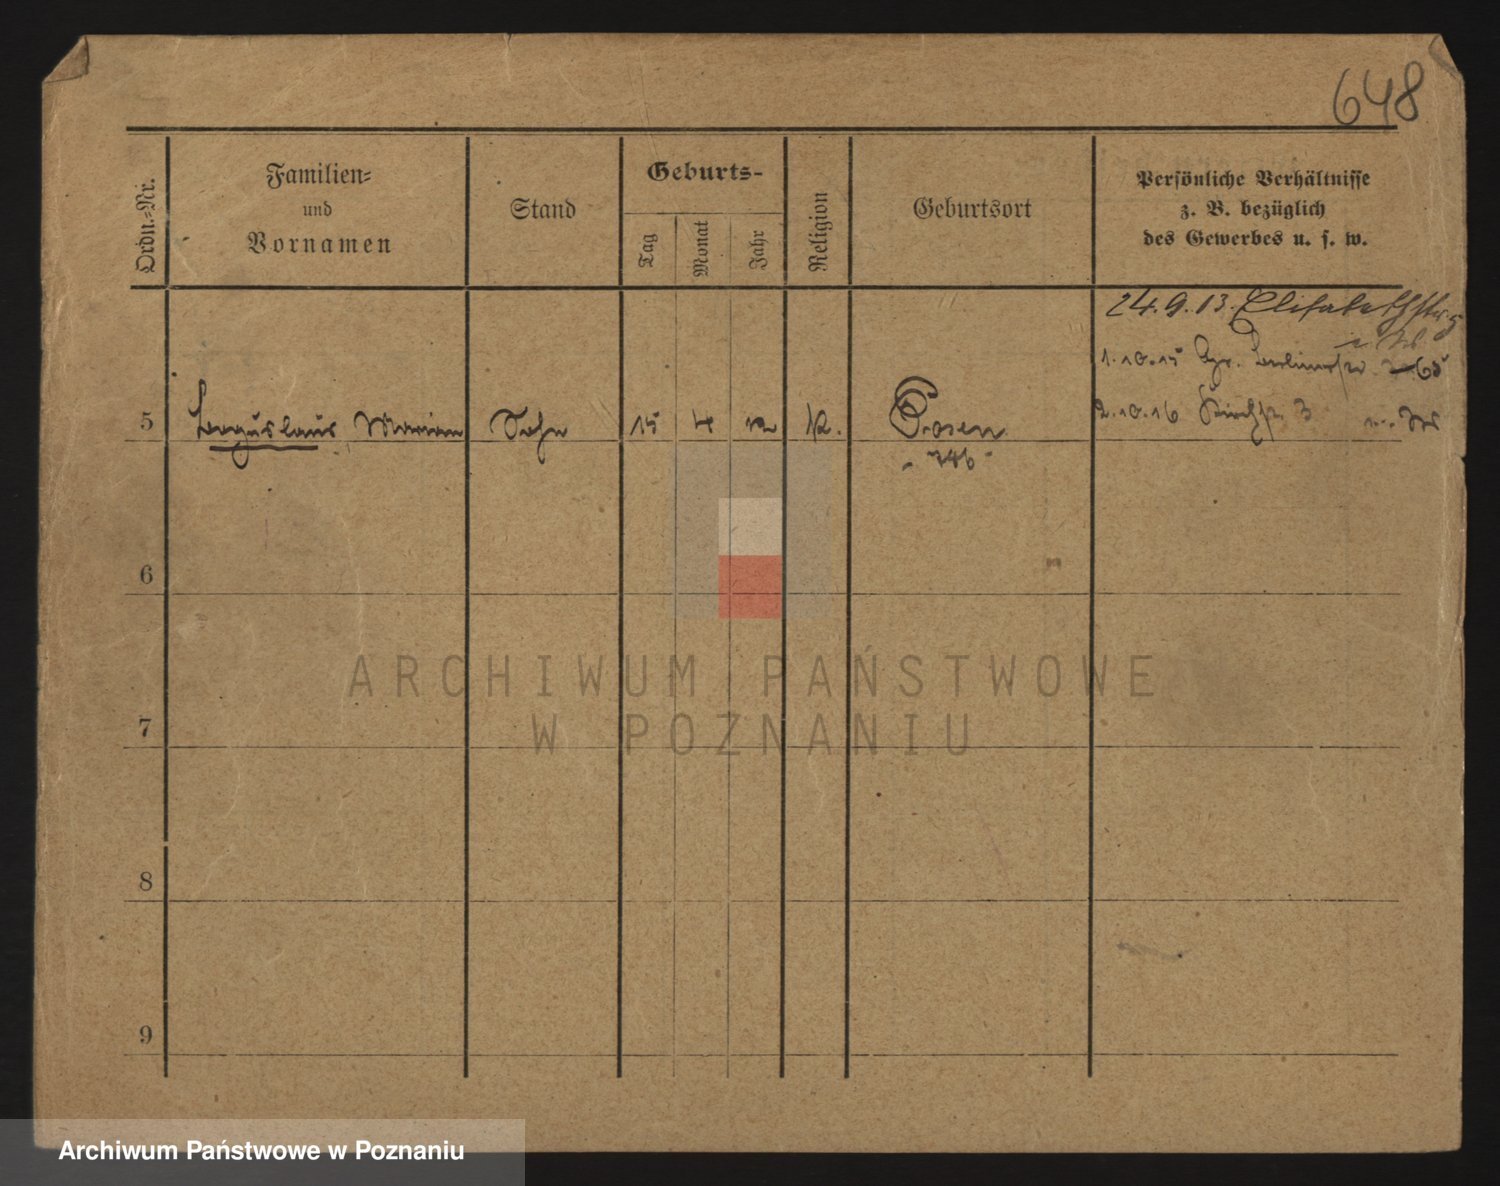 648
Ordn.-Nr.
Familien-
und
Vornamen
Stand
Geburts-
Tag
Monat
Jahr
Religion
Geburtsort
Persönliche Verhältnisse
z. B. bezüglich
des Gewerbes u. s. w.
24.9.13. Elisabethstr. 5
1.10.15 65
5 Boguslaus Marian Sohn 15 4 12 K. Posen
2.10.16 Kirchstr. 3
746
6
7
8
9
ARCHIWUM PAŃSTWOWE
W POZNANIU
Archiwum Państwowe w Poznaniu